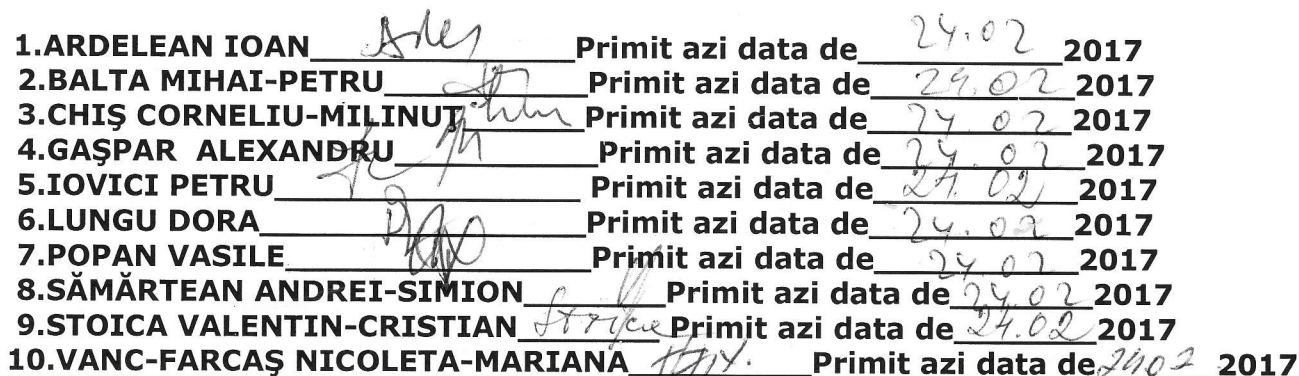 1.ARDELEAN IOAN Primit azi data de 24.02 2017
2.BALTA MIHAI-PETRU Primit azi data de 24.02 2017
3.CHIŞ CORNELIU-MILINUŢ Primit azi data de 24.02 2017
4.GAŞPAR ALEXANDRU Primit azi data de 24.02 2017
5.IOVICI PETRU Primit azi data de 24.02 2017
6.LUNGU DORA Primit azi data de 24.02 2017
7.POPAN VASILE Primit azi data de 24.02 2017
8.SĂMĂRTEAN ANDREI-SIMION Primit azi data de 24.02 2017
9.STOICA VALENTIN-CRISTIAN Stoica Primit azi data de 24.02 2017
10.VANC-FARCAŞ NICOLETA-MARIANA Primit azi data de 24.02 2017